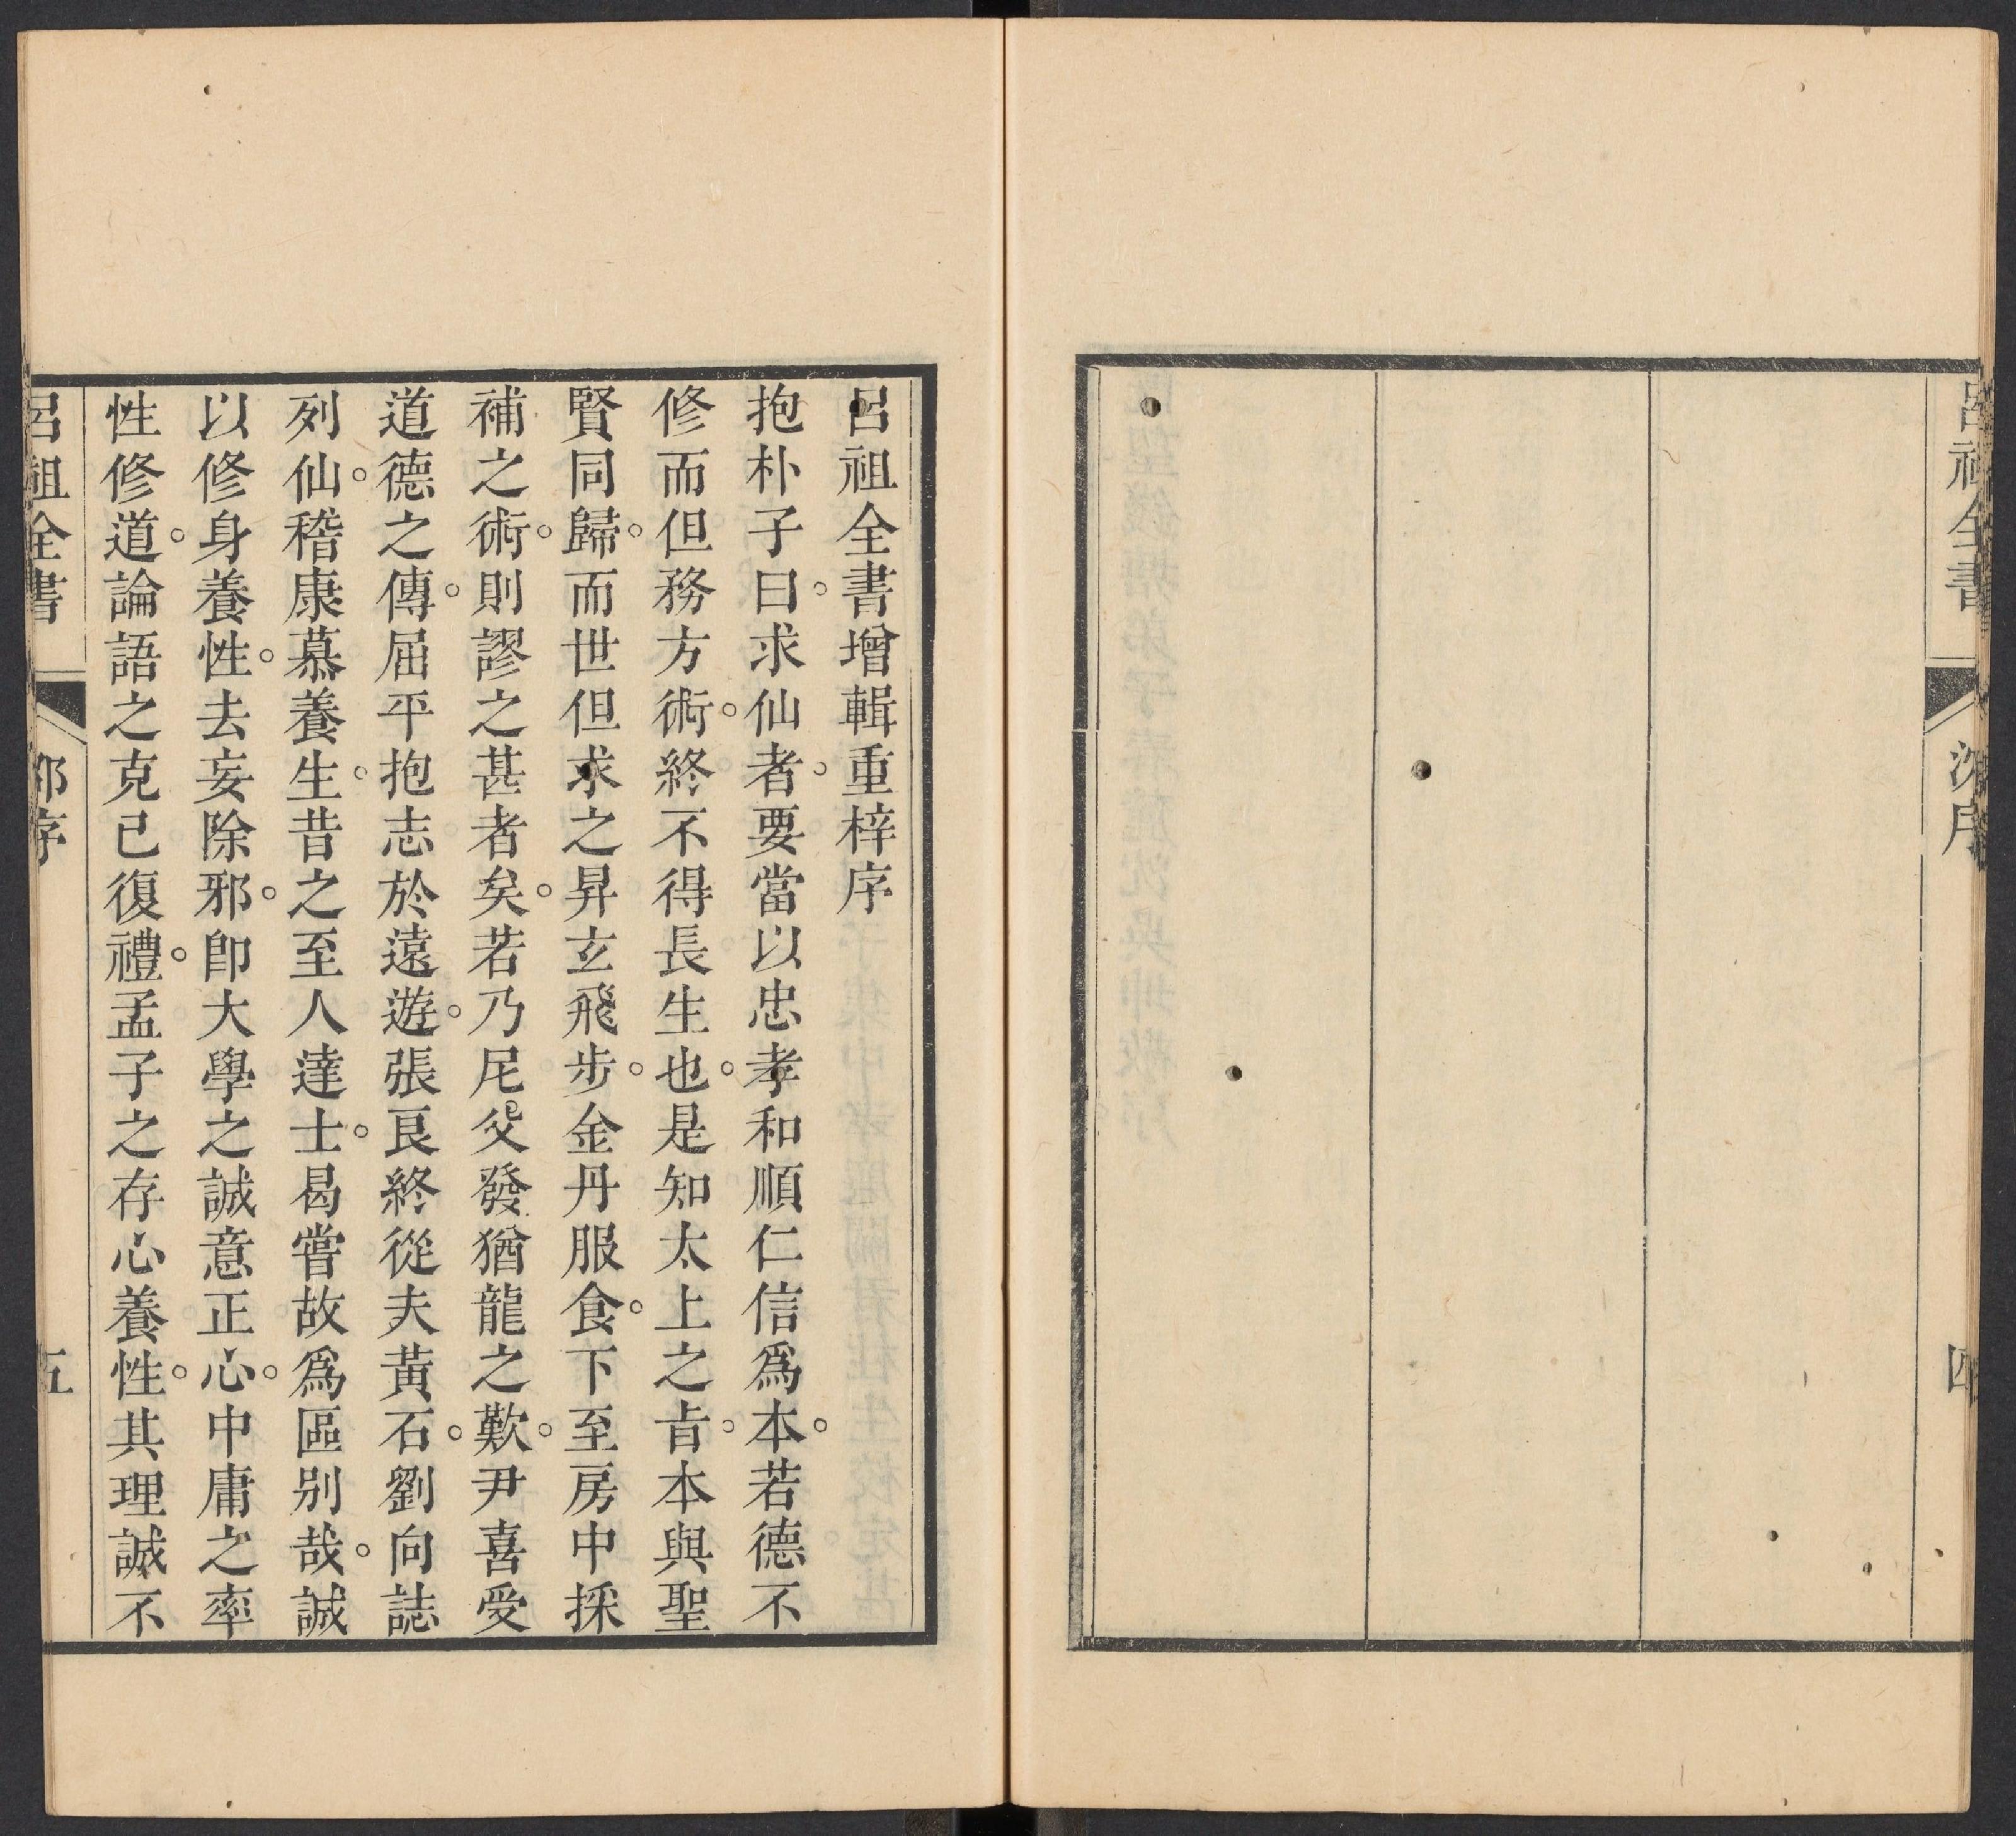 呂祖全書
沈序
四
呂祖全書增輯重梓序
抱朴子曰。求仙者。要當以忠孝和順仁信爲本。若德不
修而但務方術。終不得長生也。是知太上之㫖。本與聖
賢同歸。而世但求之昇玄飛步。金丹服食。下至房中採
補之術。則謬之甚者矣。若乃尼父發猶龍之歎。尹喜受
道德之傳。屈平抱志於遠遊。張良終從夫黃石。劉向誌
列仙。稽康慕養生。昔之至人達士。曷嘗故爲區别哉。誠
以修身養性。去妄除邪。卽大學之誠意正心。中庸之率
性修道。論語之克己復禮。孟子之存心養性。其理誠不
呂祖全書
序
五